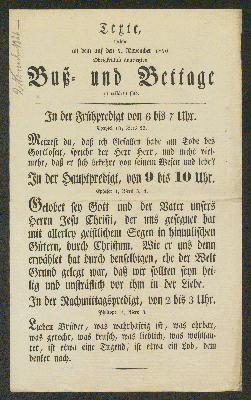 Texte,
welche
an dem auf den 2. November 18
Buß- und Bettage
zu erklären sind.
In der Frühpredigt von 6 bis 7 Uhr.
Meinest du, daß ich Gefallen habe am Tode des
Gottlosen, spricht der Herr Herr, und nicht viel-
mehr, daß er sich bekehre von seinem Wesen und lebe?
In der Hauptpredigt, von 9 bis 10 Uhr.
Gelobet sey Gott und der Vater unsers
Herrn Jesu Christi, der uns gesegnet hat
mit allerley geistlichem Segen in himmlischen
Gütern, durch Christum. Wie er uns denn
erwählet hat durch denselbigen, ehe der Welt
Grund gelegt war, daß wir sollten seyn heilig
und unsträflich vor ihm in der Liebe.
In der Nachmittagspredigt, von 2 bis 3 Uhr.
Lieben Brüder, was wahrhaftig ist, was ehrbar,
was gerecht, was keusch, was lieblich, was wohllau-
tet, ist etwa eine Tugend, ist etwa ein Lob, dem
denket nach.